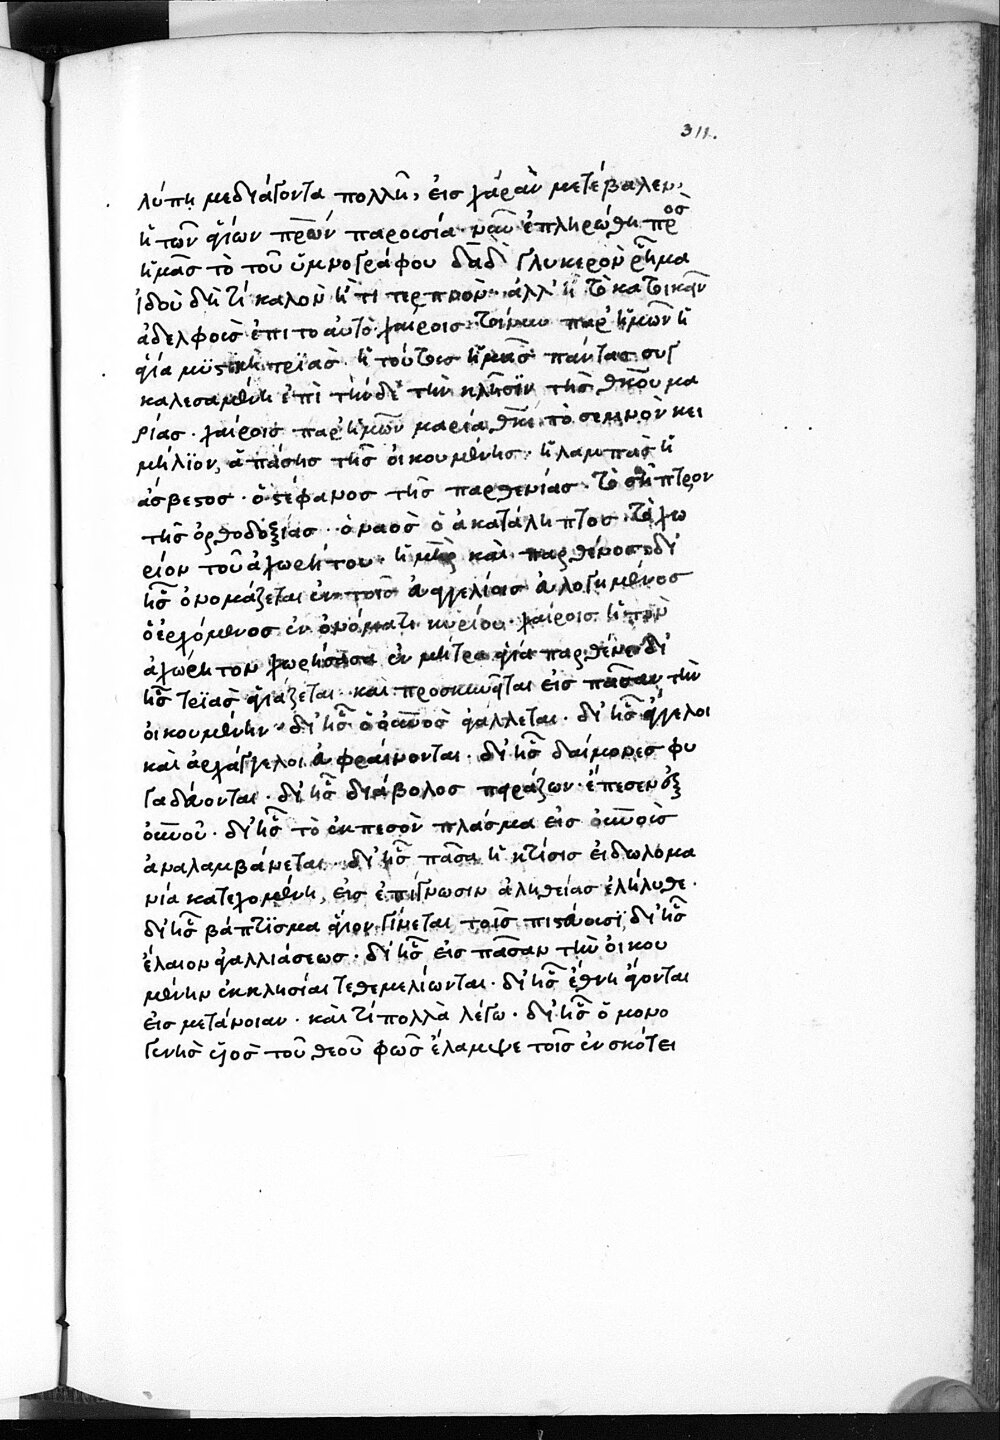 311.
λύπη με διάγοντα πολλῆ, εἰς χαρὰν μετέβαλεν,
ἡ τῶν ἁγίων πρων παρουσία· νῦν ἐπληρώθη πρὸς
ἡμᾶς τὸ τοῦ ὑμνογράφου δαδ γλυκερὸν ῥῆμα
ἰδοὺ δὴ τί καλὸν ἢ τι τερπνὸν· ἀλλ' ἢ τὸ κατοικεῖν
ἀδελφοὺς ἐπι το αὐτὸ· χαίροις τοίνυν παρ' ἡμῶν ἡ
ἁγία μυστικὴ τρϊὰς ἡ τούτους ἡμᾶς πάντας συγ
καλεσαμένη ἐπὶ τήνδε τὴν κλῆσϊν τῆς θκου μα
ρίας· χαίροις παρ' ἡμῶν μαρία θκε τὸ σεμνὸν κει
μήλϊον, ἁπάσης τῆς οἰκουμένης· ἡ λαμπὰς ἡ
ἄσβεστος· ὁ στέφανος τῆς παρθενίας· τὸ σκῆπτρον
τῆς ὀρθοδοξίας· ὁ ναὸς ὁ ἀκατάληπτος· τὸ χω
ρίον τοῦ ἀχωρήτου· ἡ μηρ καὶ παρθένος· δι'
ἧς ὀνομάζεται ἐν τοῖς εὐαγγελίοις εὐλογημένος
ὁ ἐρχόμενος ἐν ὀνόματι κυρίου· χαίροις ἡ τὸν
ἀχώρητον χωρήσασα ἐν μήτρα ἁγία παρθένε· δι'
ἧς τρϊὰς ἁγιάζεται καὶ προσκυνῆται εἰς πᾶσαν τὴν
οἰκουμένην· δι' ἧς ὁ οὐνος ἀγάλλεται· δι' ἧς ἄγγελοι
καὶ ἀρχάγγελοι εὐφραίνονται· δι' ἧς δαίμονες φυ
γαδεύονται· δι' ἧς διάβολος πειράζων· ἔπεσεν ἐξ
οὐνου· δι' ἧς τὸ ἐκπεσὸν πλάσμα εἰς οὐνοὺς
ἀναλαμβάνεται· δι' ἧς πᾶσα ἡ κτίσις εἰδωλομα
νία κατεχομένη, εἰς ἐπίγνωσιν ἀληθείας ἐλήλυθε·
δι' ἧς βάπτϊσμα ἅγιον γίνεται τοῖς πιστεύουσι, δι' ἧς
ἔλαιον ἀγαλλιάσεως· δι' ἧς εἰς πᾶσαν τὴν οἰκου
μένην ἐκκλησίαι τεθεμελίωνται· δι' ἧς ἔθνη ἄγονται
εἰς μετάνοιαν· καὶ τί πολλὰ λέγω· δι' ἧς ὁ μονο
γενὴς υἱὸς τοῦ θεοῦ φῶς ἔλαμψε τοῖς ἐν σκότει